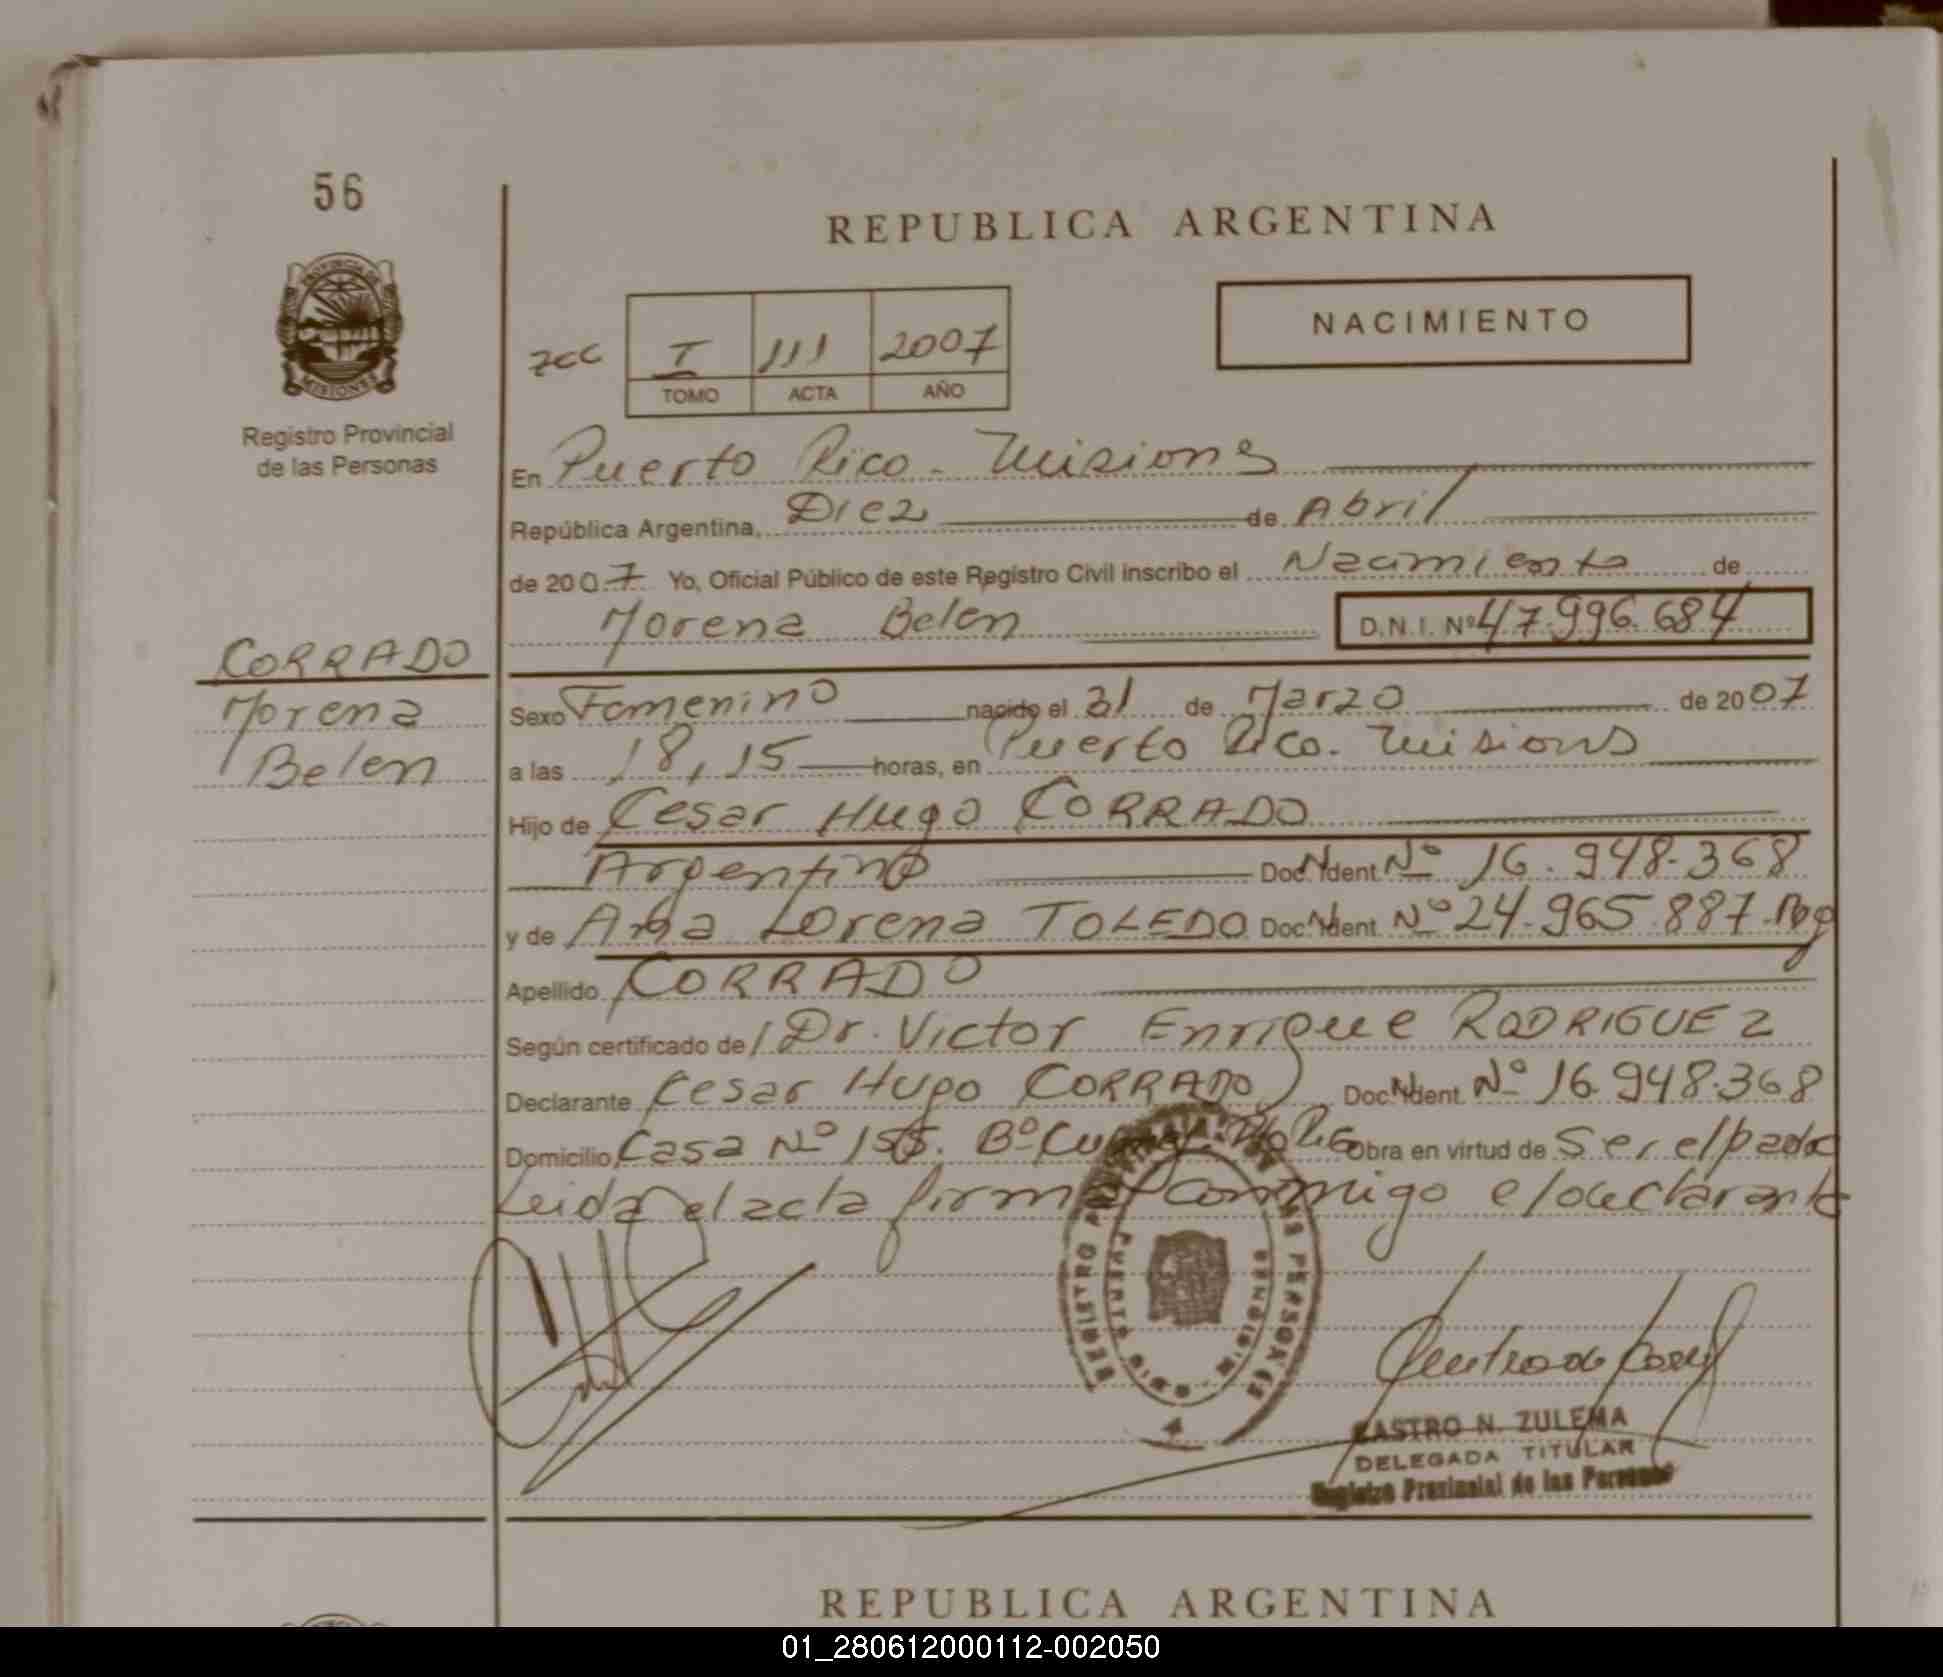 56
REPUBLICA ARGENTINA
NACIMIENTO
PROVINCIA DE
MISIONES
Registro Provincial
de las Personas
7CC
I 111 2007
TOMO ACTA AÑO
En Puerto Rico - Misiones
República Argentina, Diez de Abril
de 2007 Yo, Oficial Público de este Registro Civil inscribo el Nacimiento de
Morena Belen D.N.I. Nº 47.996.684
CORRADO
Morena
Belen
Sexo Femenino nacido el 31 de Marzo de 2007
a las 18,15 horas, en Puerto Rico. Misiones
Hijo de Cesar Hugo CORRADO
Argentino Doc. Ident. Nº 16.948.368
y de Ana Lorena TOLEDO Doc. Ident. Nº 24.965.887
Apellido CORRADO
Según certificado del Dr. Victor Enrique RODRIGUEZ
Declarante Cesar Hugo CORRADO Doc. Ident. Nº 16.948.368
Domicilio Casa Nº Bº Obra en virtud de Ser el padre
Leida el acta firma conmigo el declarante
REGISTRO PERSONAS
PUERTO RICO MISIONES
CASTRO N. ZULEMA
DELEGADA TITULAR
Registro Provincial de las Personas
REPUBLICA ARGENTINA
01_280612000112-002050